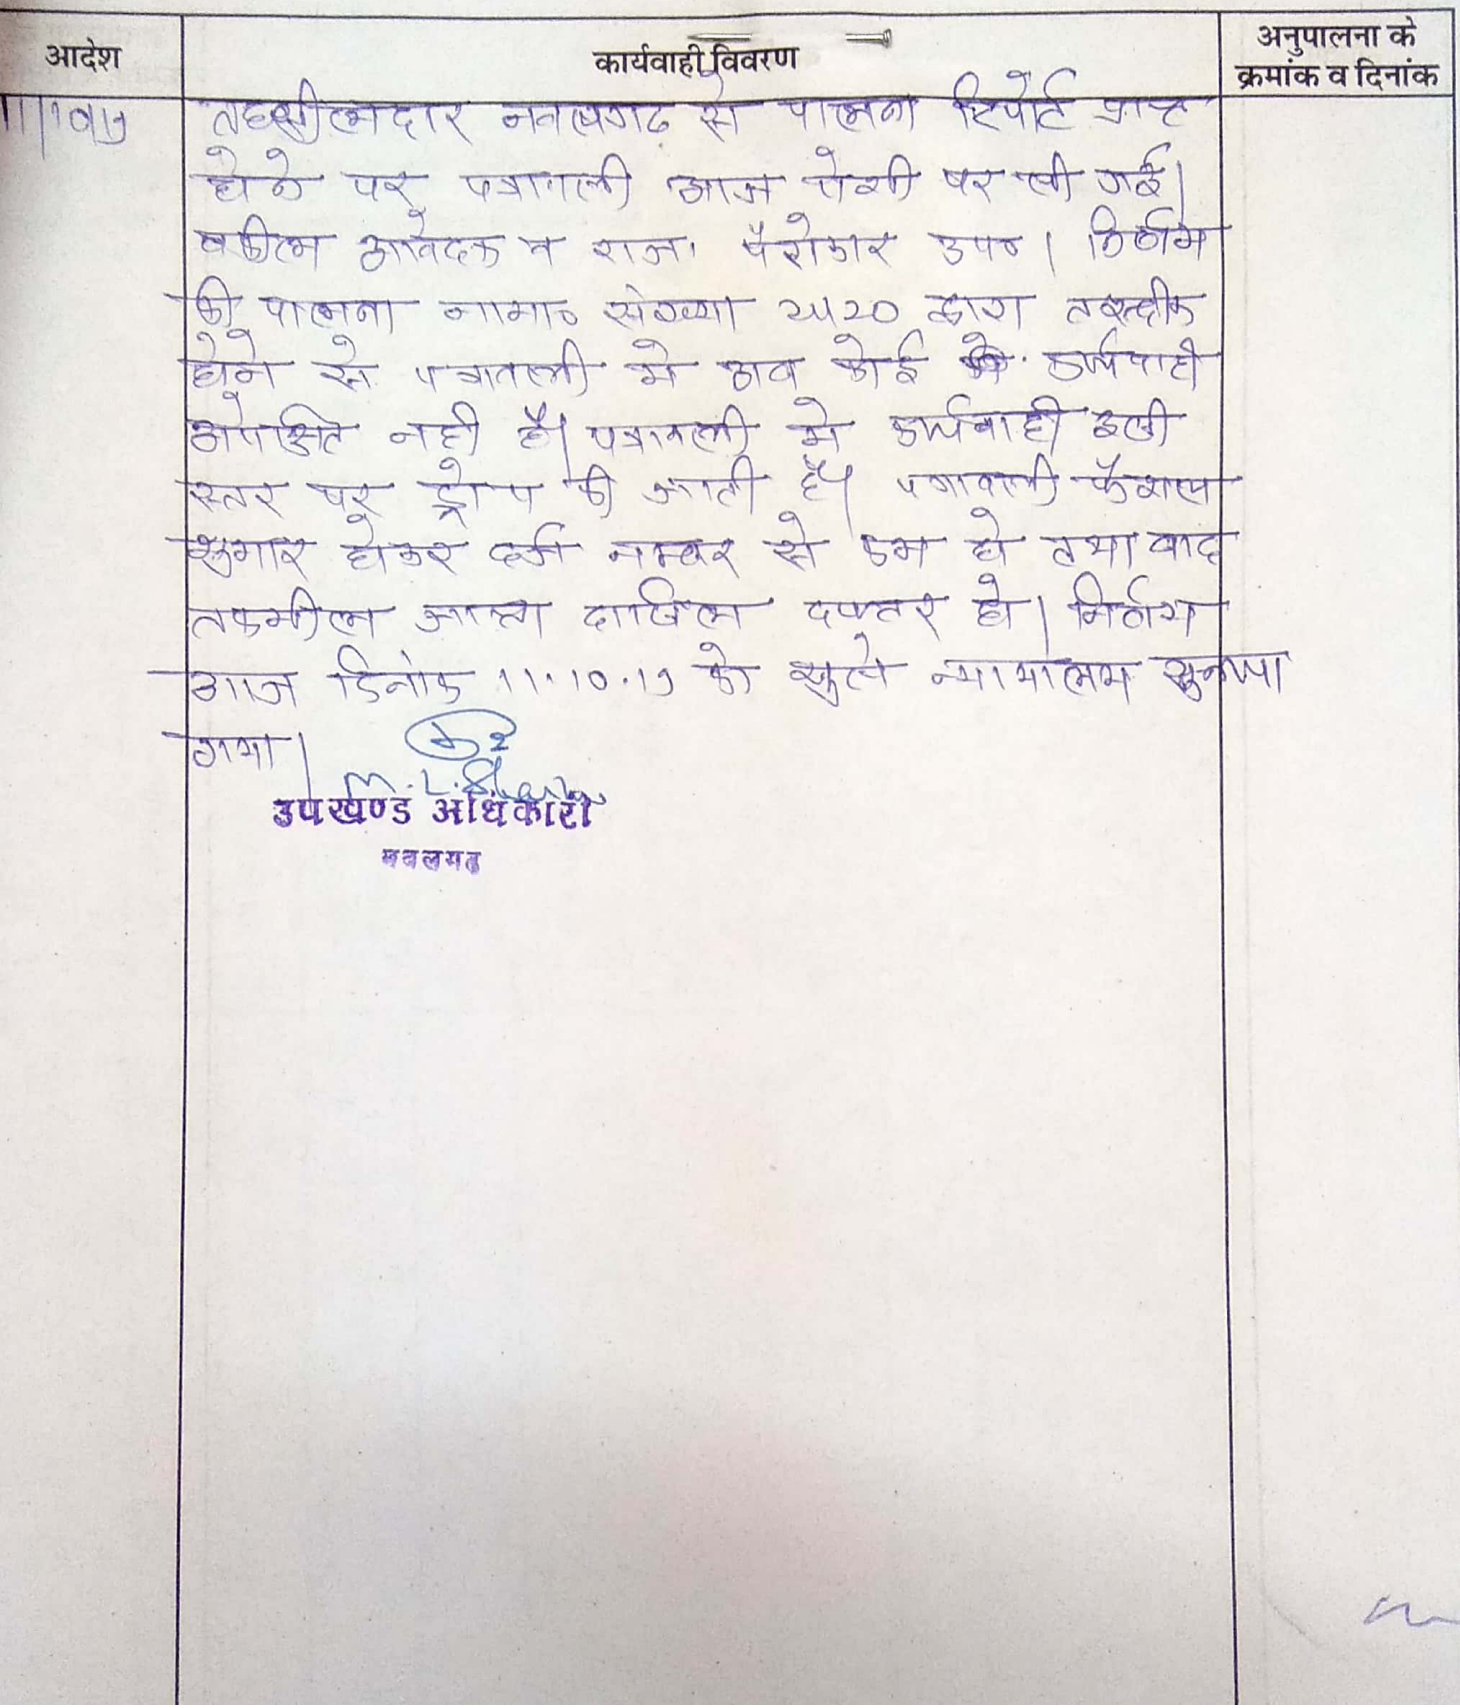 आदेश
कार्यवाही विवरण
अनुपालना के
क्रमांक व दिनांक
तहसीलदार नवलगढ़ से पालना रिपोर्ट प्राप्त
होने पर पत्रावली आज पेशी पर ली गई।
वकील आवेदक व राज. पैरोकार उप०। निर्णय
की पालना नामा० संख्या 2420 द्वारा तस्दीक
होने से पत्रावली मे अब कोई कार्यवाही
अपेक्षित नही है। पत्रावली मे कार्यवाही इसी
स्तर पर ड्रोप की जाती है। पत्रावली फैसल
शुमार होकर दर्ज नम्बर से कम हो तथा बाद
तकमील जाप्ता दाखिल दफ्तर हो। निर्णय
आज दिनांक 11.10.19 को खुले न्यायालय सुनाया
गया।
उपखण्ड अधिकारी
नवलगढ